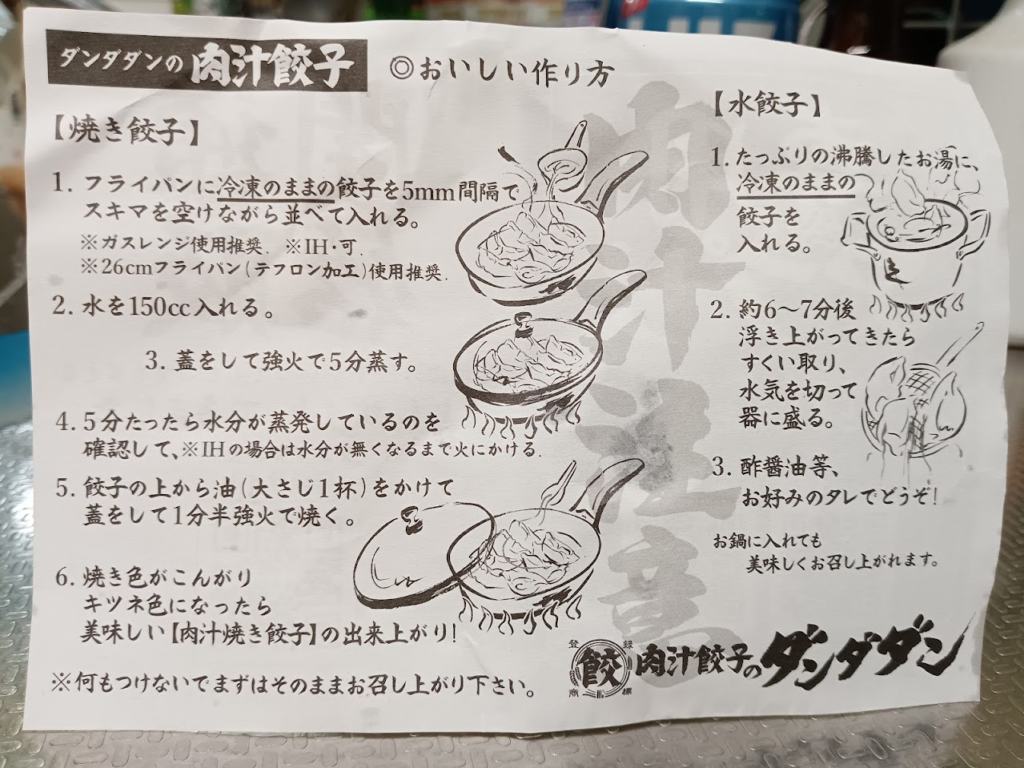 ダンダダンの 肉汁餃子 ◎おいしい作り方
【焼き餃子】
1. フライパンに冷凍のままの餃子を5mm間隔で
スキマを空けながら並べて入れる。
※ガスレンジ使用推奨. ※IH・可.
※26cmフライパン(テフロン加工)使用推奨.
2. 水を150cc入れる。
3. 蓋をして強火で5分蒸す。
4. 5分たったら水分が蒸発しているのを
確認して、※IHの場合は水分が無くなるまで火にかける.
5. 餃子の上から油(大さじ1杯)をかけて
蓋をして1分半強火で焼く。
6. 焼き色がこんがり
キツネ色になったら
美味しい【肉汁焼き餃子】の出来上がり!
※何もつけないでまずはそのままお召し上がり下さい。
【水餃子】
1. たっぷりの沸騰したお湯に、
冷凍のままの
餃子を
入れる。
2. 約6~7分後
浮き上がってきたら
すくい取り、
水気を切って
器に盛る。
3. 酢醤油等、
お好みのタレでどうぞ!
お鍋に入れても
美味しくお召し上がれます。
肉汁注意
登録商標
餃
肉汁餃子のダンダダン